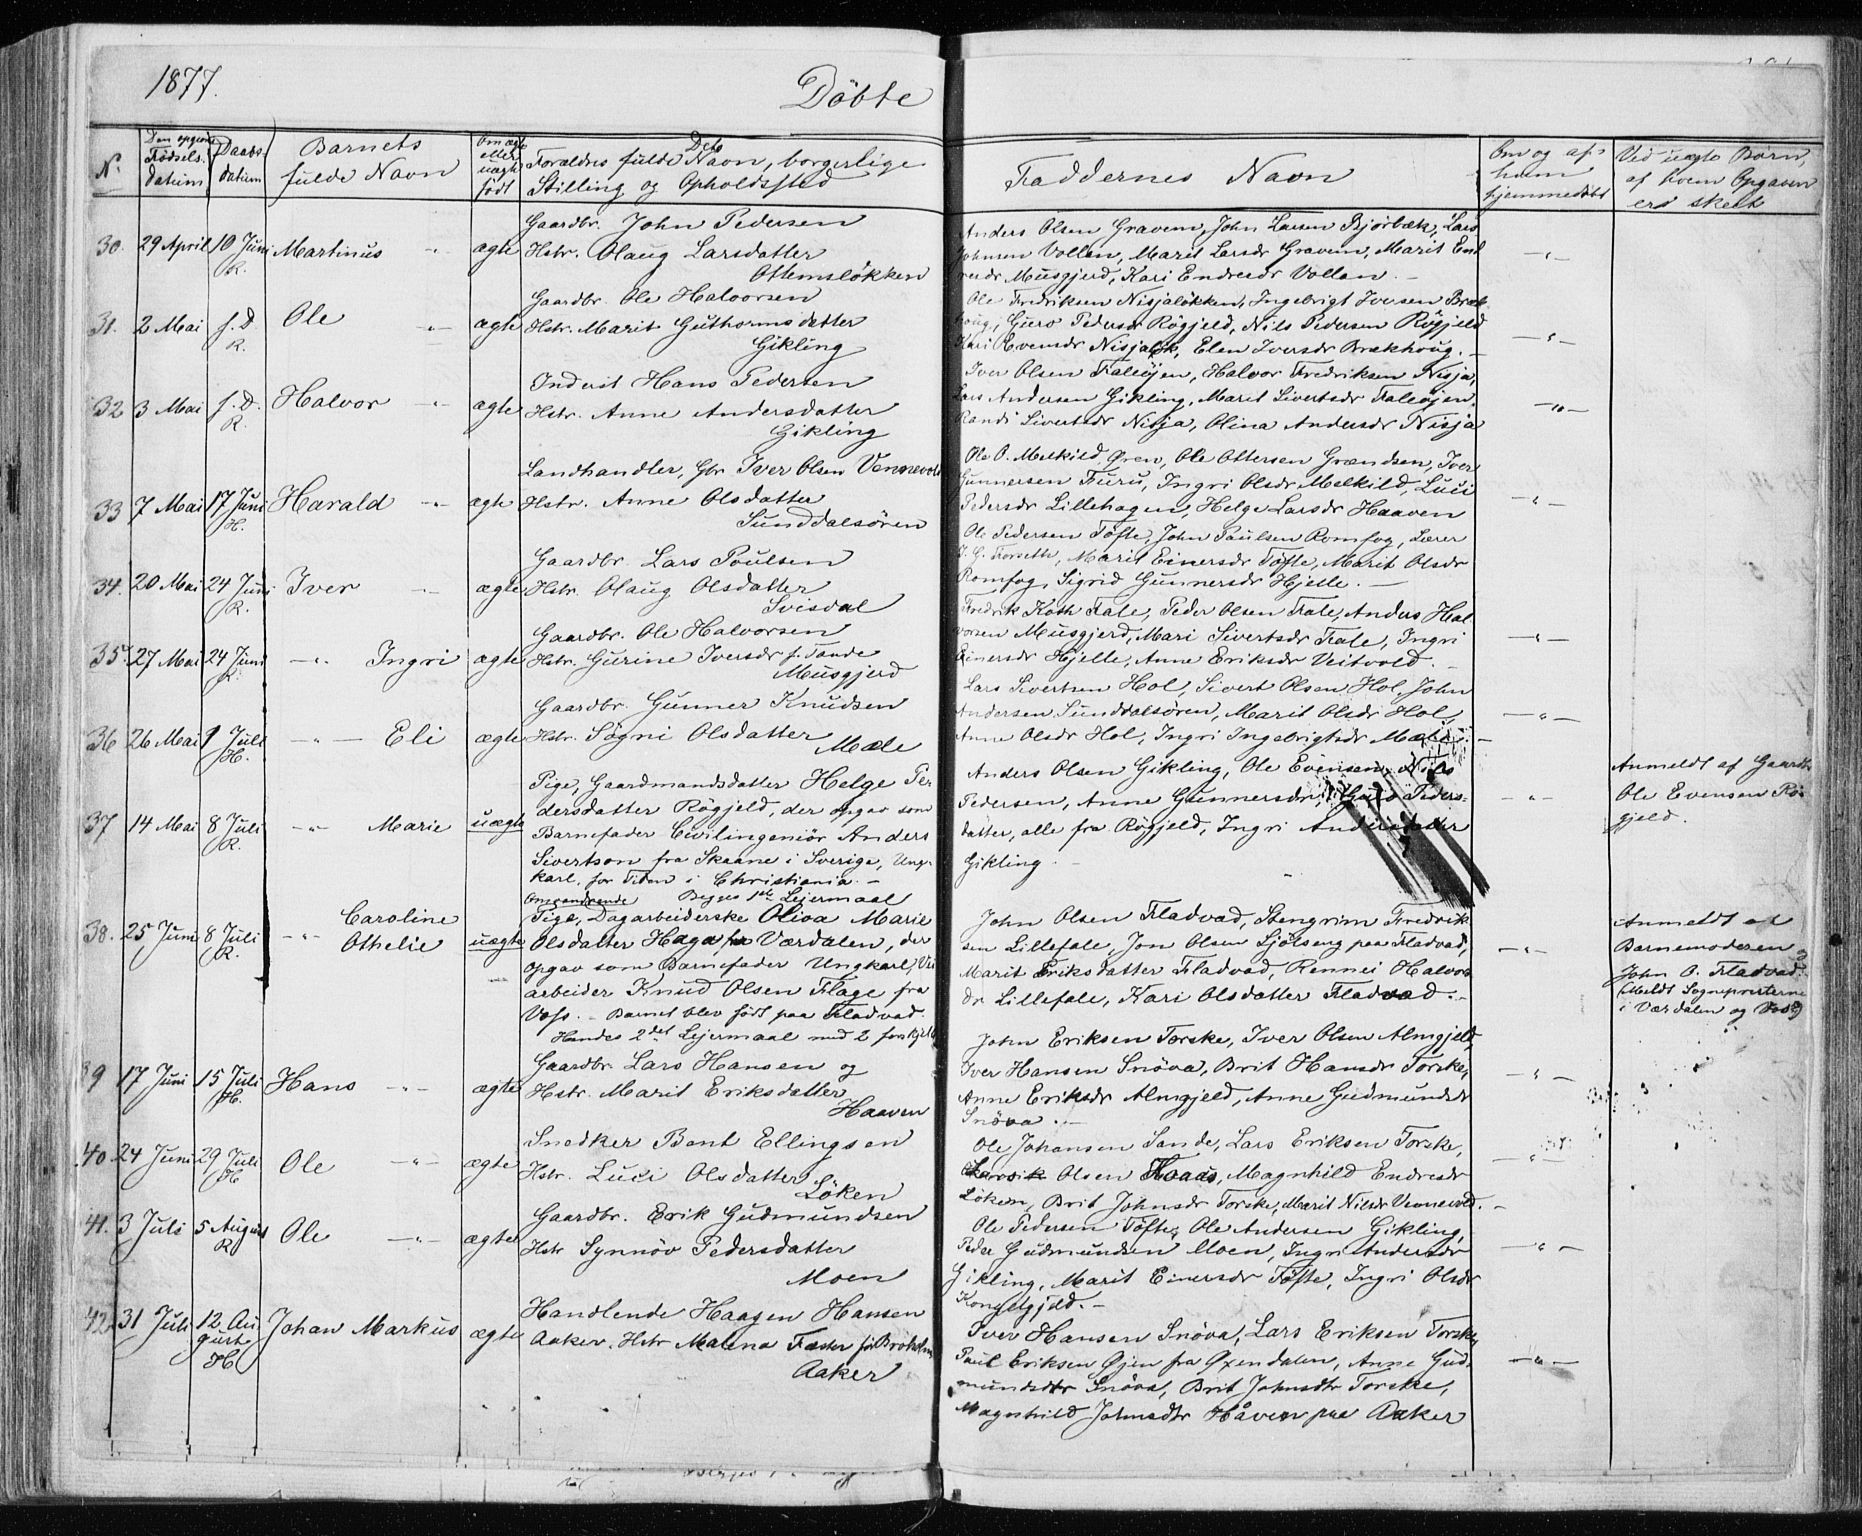 1877.
Döbte
N.
Den opgivne
Fødsels-
datum
Daabs-
datum
Barnets
fulde Navn
Om ægte
eller
uægte
født
Forældres fulde Navn, borgerlige
Stilling og Opholdssted
Faddernes Navn
Om og af
hvem
hjemmedøbt
Ved uægte Børn,
af hvem Opgaven
er skeet
30. 29 April 10 Juni R. Martinus ægte
Gaardbr. John Pedersen
Hstr. Olaug Larsdatter
Ottemsløkken
Anders Olsen Gravem, John Larsen Bjørbæk, Lars
Johnsen Vollan, Marit Larsdr Gravem, Marit End
resdr Musgjerd, Kari Endresdr Vollan. -
31. 2 Mai s. D. R. Ole ægte
Gaardbr. Ole Halvorsen
Hstr. Marit Guthormsdatter
Gikling
Ole Fredriksen Nisjaløkken, Ingebrigt Iversen Bræk
houg, Guro Pedersdr Røgjeld, Nils Pedersen Røgjeld
Kari Evensdr Nisjaløk, Elen Iversdr Brækhoug. -
32 3 Mai s. D. R. Halvor ægte
Inderst Hans Pedersen
Hstr. Anne Andersdatter
Gikling
Iver Olsen Faleøjen, Halvor Fredriksen Nisja,
Lars Andersen Gikling, Marit Sivertsdr Faleøjen.
Randi Sivertsdr Nisja, Olina Andersdr Nisja
33 7 Mai 17 Juni H. Harald ægte
Landhandler, Gbr Iver Olsen Vennevold
Hstr. Anne Olsdatter
Sunddalsøren
Ole O. Melkild Øren, Ole Ottersen Grændsen, Iver
Gunnersen Furu, Ingri Olsdr Melkild, Luci
Pedersdr Lillehagen, Helge Larsdr Haaven
34. 20 Mai 24 Juni R. Iver ægte
Gaardbr. Lars Poulsen
Hstr. Olaug Olsdatter
Svisdal
Ole Pedersen Tøfte, John Paulsen Romfog, Lærer
Forseth, Marit Einersdr Tøfte, Marit Olsdr
Romfog, Sigrid Gunnersdr Hjelle. -
35 27 Mai 24 Juni R. Ingri ægte
Gaardbr. Ole Halvorsen
Hstr. Gurine Iversdr f. Tande
Musgjerd
Fredrik Koth Fale, Peder Olsen Fale, Anders Hal
vorsen Musgjerd, Mari Sivertsdr Fale, Ingri
Einersdr Hjelle, Anne Eriksdr Veitvold. -
36 26 Mai 1 Juli H. Eli ægte
Gaardbr. Gunner Knudsen
Hstr. Søgni Olsdatter
Mæle
Lars Sivertsen Hol, Sivert Olsen Hol, John
Andersen Sunddalsøren, Marit Olsdr Hol,
Anne Olsdr Hol, Ingri Ingebrigtsdr Mæle. -
37 14 Mai 8 Juli R. Marie uægte
Pige, Gaardmandsdatter Helge Pe-
dersdatter Røgjeld, der opgav som
Barnefader Civilingeniør Anders
Sivertson fra Skaane i Sverige, Ung-
karl, for Tiden i Christiania. -
Begges 1ste Lejermaal
Anders Olsen Gikling, Ole Evensen, Nils
Pedersen, Anne Gunnersdr, Guro Peders-
datter, alle fra Røgjeld, Ingri Andersdatter
Gikling. -
Anmeldt af Gaardbr
Ole Evensen Rø-
gjeld.
38. 25 Juni 8 Juli R. Caroline
Othelie uægte
Omvandrende
Pige, Dagarbeiderske Oliva Marie
Olsdatter Haga fra Værdalen, der
opgav som Barnefader Ungkarl, Vei
arbeider Knud Olsen Flage fra
Voss. - Barnet blev født paa Fladvad.
Hendes 2det Lejermaal med 2 forskjell
John Olsen Fladvad, Stengrim Fredrik
sen Lillefale, Jon Olsen Sjölseng paa Fladvad,
Marit Eriksdatter Fladvad, Rennei Halvors
dr Lillefale, Kari Olsdatter Fladvad. -
Anmeldt af
Barnemoderen
John O. Fladvad
(Meldt Sognepresterne
i Værdalen og Voss)
39 17 Juni 15 Juli H. Hans ægte
Gaardbr. Lars Hansen og
Hstr. Marit Eriksdatter
Haaven
John Eriksen Torske, Iver Olsen Almgjeld,
Iver Hansen Snøva, Brit Hansdr Torske,
Anne Eriksdr Almgjeld, Anne Gudmundsdr
Snøva. -
40. 24 Juni 29 Juli H Ole ægte
Snedker Bent Ellingsen
Hstr. Luci Olsdatter
Løken
Ole Johansen Sande, Lars Eriksen Torske,
Olsen Magnhild Endresdr
Løken, Brit Johnsdr Torske, Marit Nilsdr Vennevold. -
41. 3 Juli 5 August R Ole ægte
Gaardbr. Erik Gudmundsen
Hstr Synnöv Pedersdatter
Moen
Ole Pedersen Tøfte, Ole Andersen Gikling,
Peder Gudmundsen Moen, Ingri Andersdr
Gikling, Marit Einersdr Tøfte, Ingri Olsdr
Kongelgjeld. -
42. 31 Juli 12 Au-
gust H Johan Markus ægte
Handlende Haagen Hansen
Aaker, Hstr Malena
Aaker
Iver Hansen Snøva, Lars Eriksen Torske,
Paul Eriksen Øjen fra Øxendalen, Anne Gud-
mundsdtr Snøva, Brit Johnsdtr Torske,
Magnhild Johnsdtr Håven paa Aaker